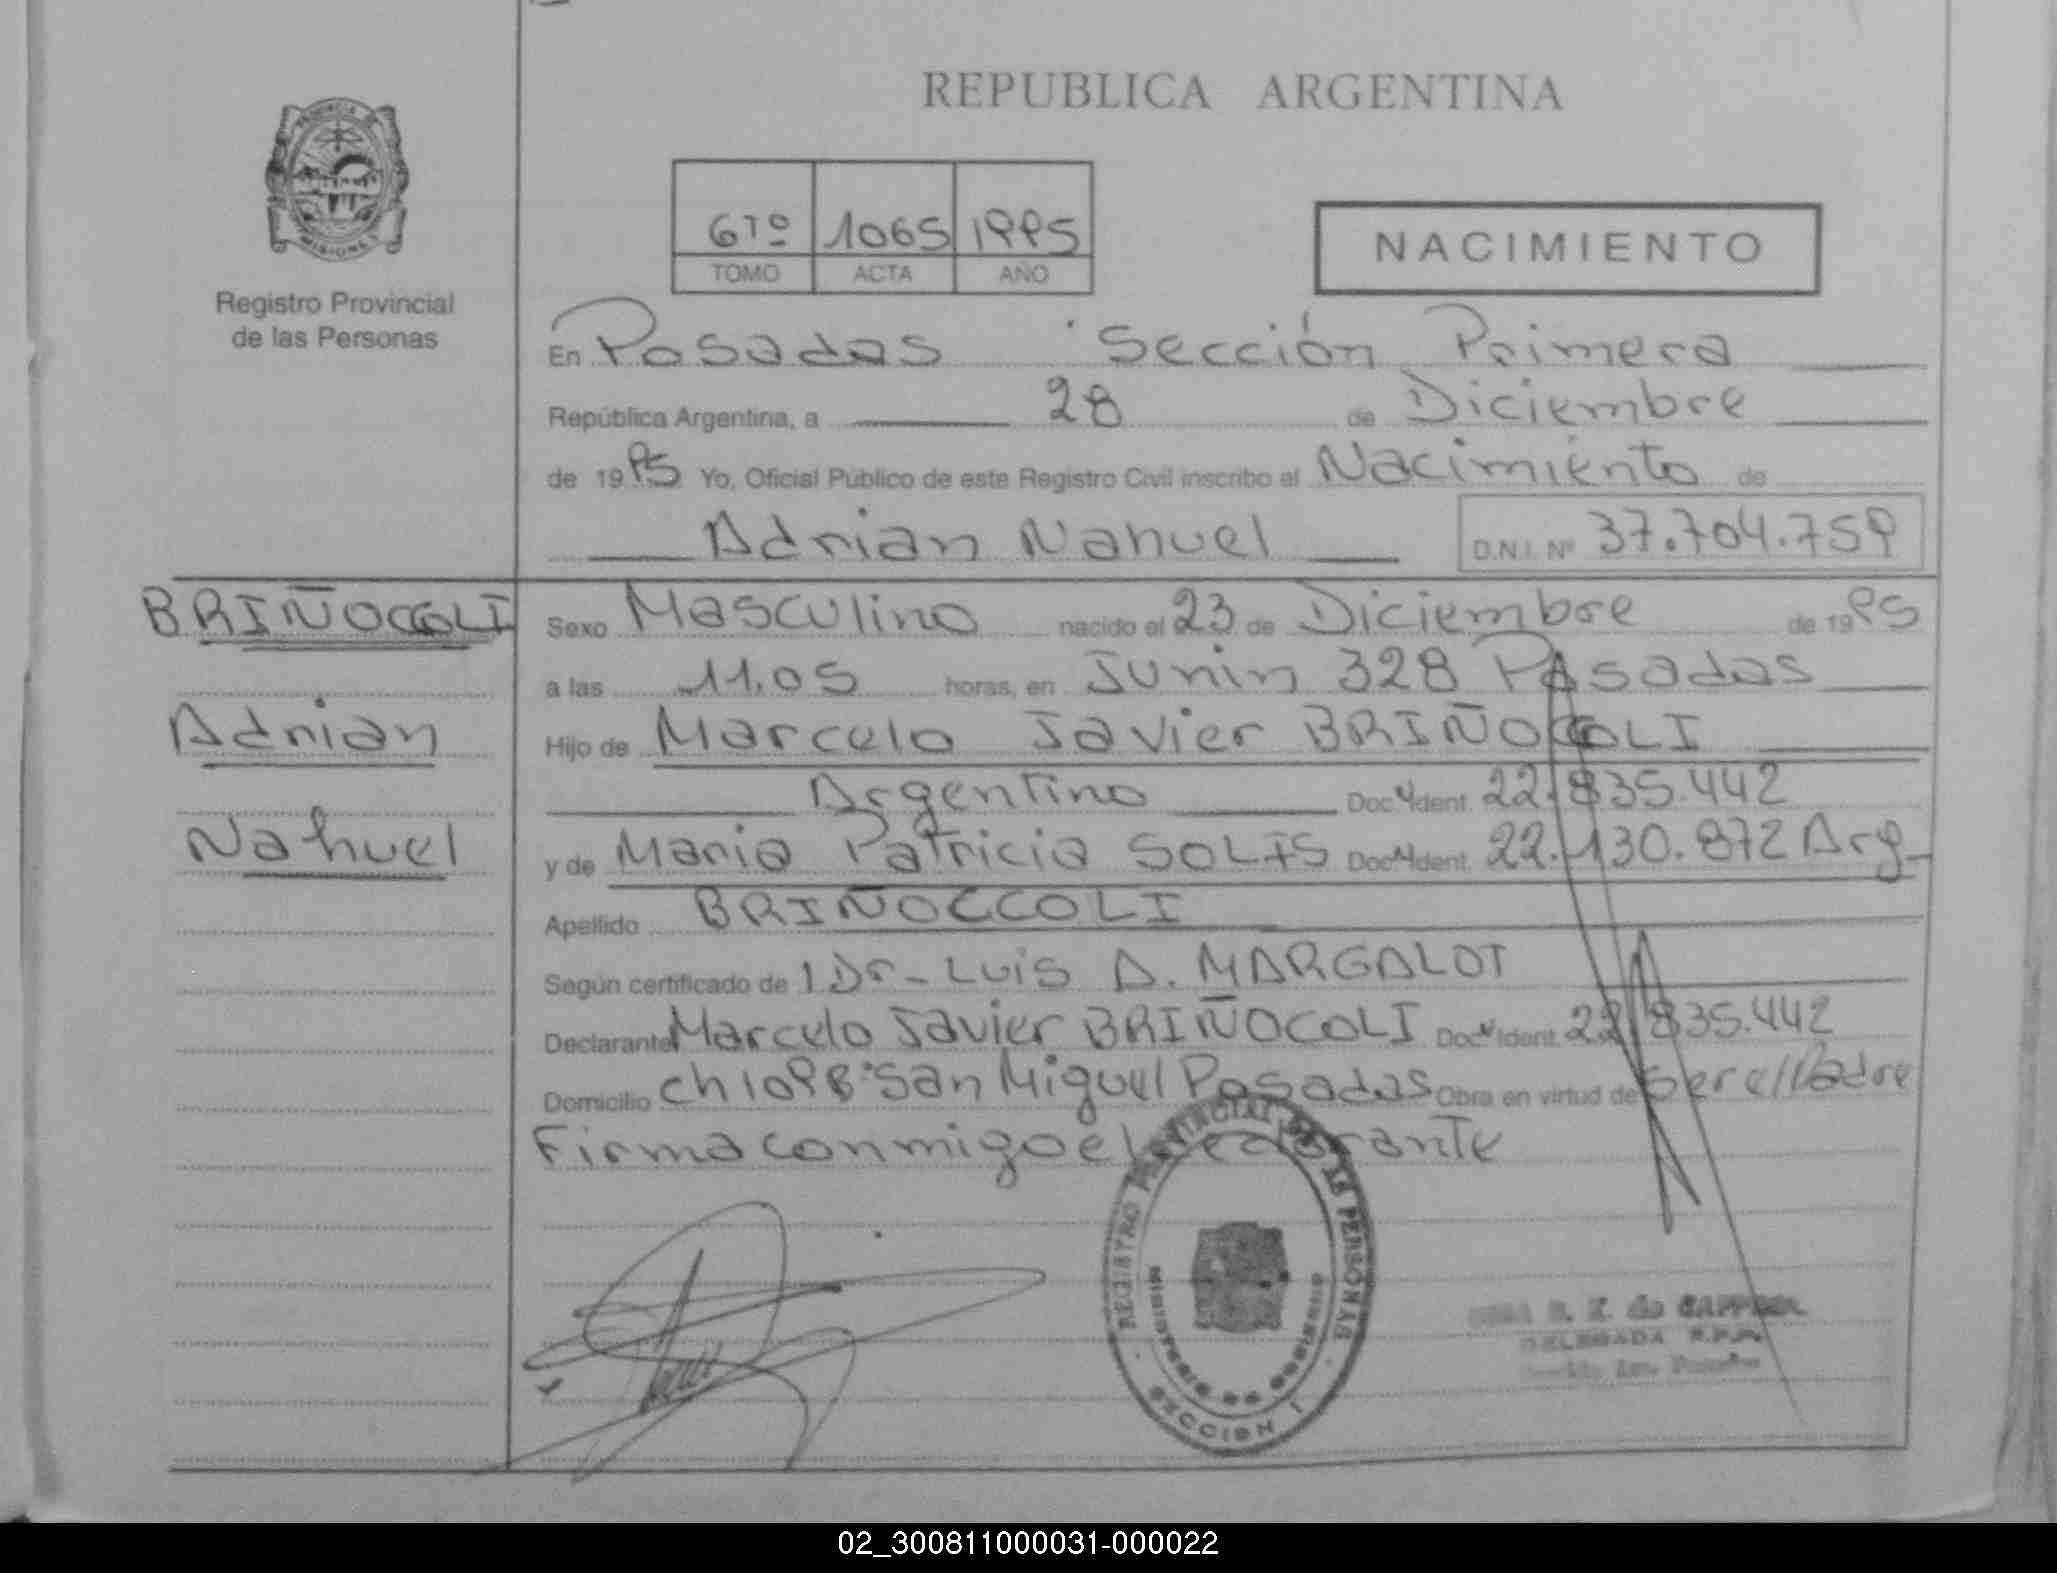 REPUBLICA ARGENTINA
PROVINCIA DE
MISIONES
Registro Provincial
de las Personas
6Tº 1065 1995
TOMO ACTA AÑO
NACIMIENTO
En Posadas Sección Primera
República Argentina, a 28 de Diciembre
de 1995 Yo, Oficial Público de este Registro Civil inscribo el Nacimiento de
Adrian Nahuel D.N.I. Nº 37.704.759
BRIÑOCCOLI
Adrian
Nahuel
Sexo Masculino nacido el 23 de Diciembre de 1995
a las 11.05 horas, en Junin 328 Posadas
Hijo de Marcelo Javier BRIÑOCCOLI
Argentino Doc. Ident. 22.835.442
y de Maria Patricia SOLIS Doc. Ident. 22.130.872 Arg
Apellido BRIÑOCCOLI
Según certificado de l Dr- Luis A. MARGALOT
Declarante Marcelo Javier BRIÑOCOLI Doc. Ident. 22.835.442
Domicilio ch 109 San Miguel Posadas Obra en virtud de ser el Padre
Firma conmigo el declarante
REGISTRO PROVINCIAL DE LAS PERSONAS
MINISTERIO DE GOBIERNO
SECCION 1
DELEGADA R.P.P.
02_300811000031-000022